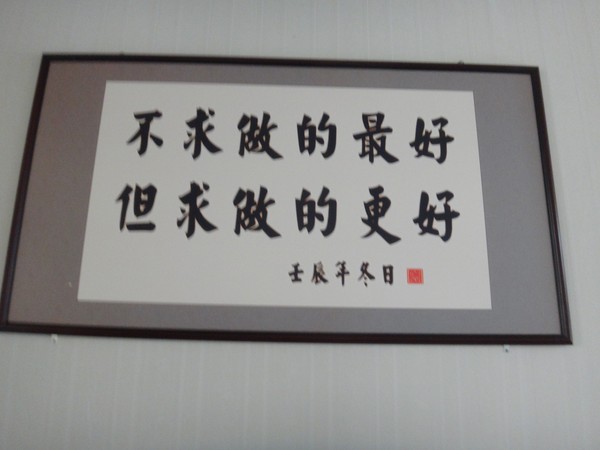 不求做的最好
但求做的更好
壬辰年冬日